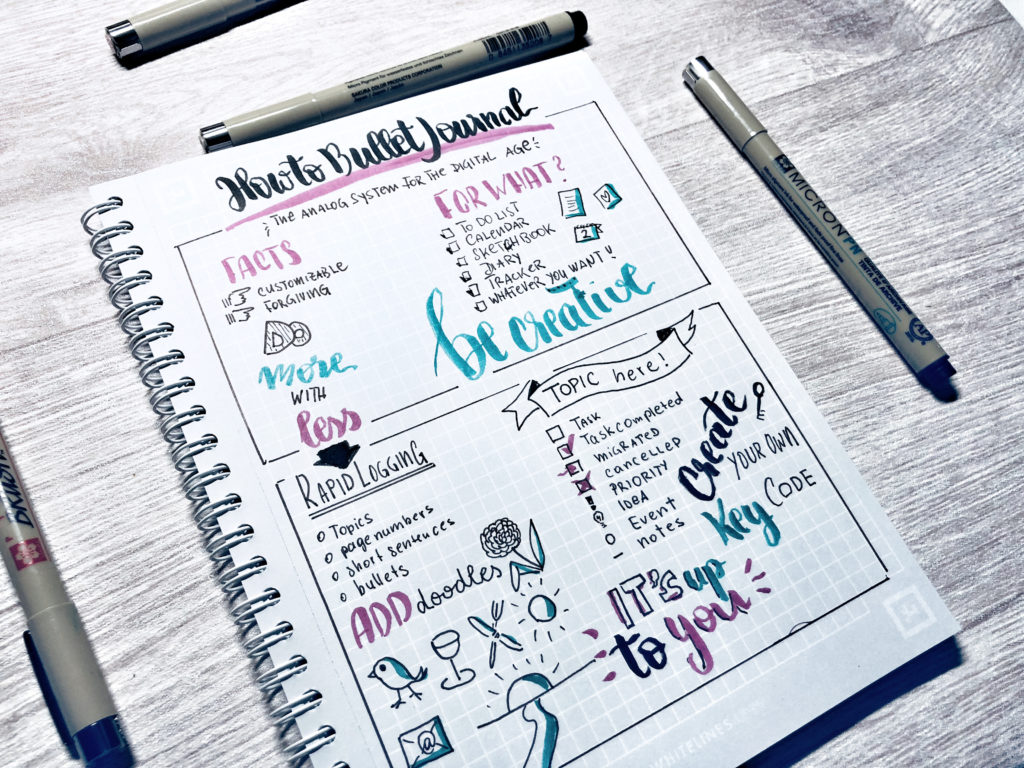 How to Bullet Journal
THE ANALOG SYSTEM FOR THE DIGITAL AGE
FACTS
CUSTOMIZABLE
FORGIVING
DO
more
WITH
less
FOR WHAT?
TO DO LIST
CALENDAR
SKETCHBOOK
DIARY
TRACKER
WHATEVER YOU WANT!
2
be creative
RAPID LOGGING
Topics
page numbers
short sentences
bullets
ADD doodles
@
TOPIC here!
Task
Task completed
MIGRATED
cancelled
! PRIORITY
IDEA
Event
notes
create
YOUR OWN
Key CODE
IT'S up
to you
WHITELINES
SAKURA COLOR PRODUCTS CORPORATION
MICRON PN